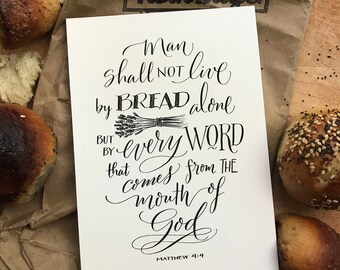 Man
shall NOT live
by BREAD alone
BUT BY every WORD
that comes from THE
mouth of
God
MATTHEW 4:4